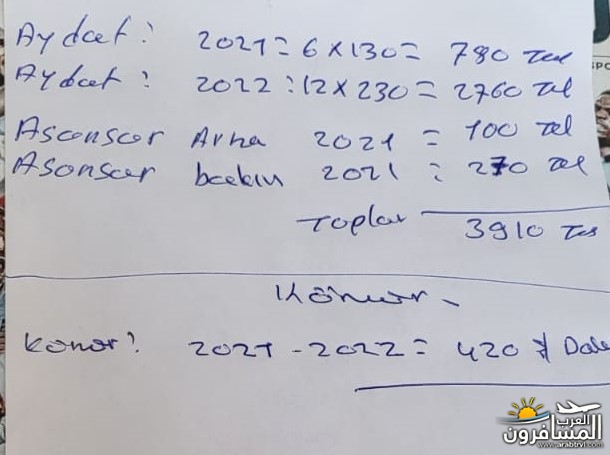 Aydat: 2021 = 6 x 130 = 780 Tel
Aydat: 2022 : 12 x 230 = 2760 Tel
Asconscor Arha 2021 = 100 Tel
Asonscor baekın 2021 : 270 Tel
Toplar 3910 Tes
Kömur -
Komor: 2021 - 2022 = 420 Dola
SPO
العرب
المسافرون
www.arabtrvl.com